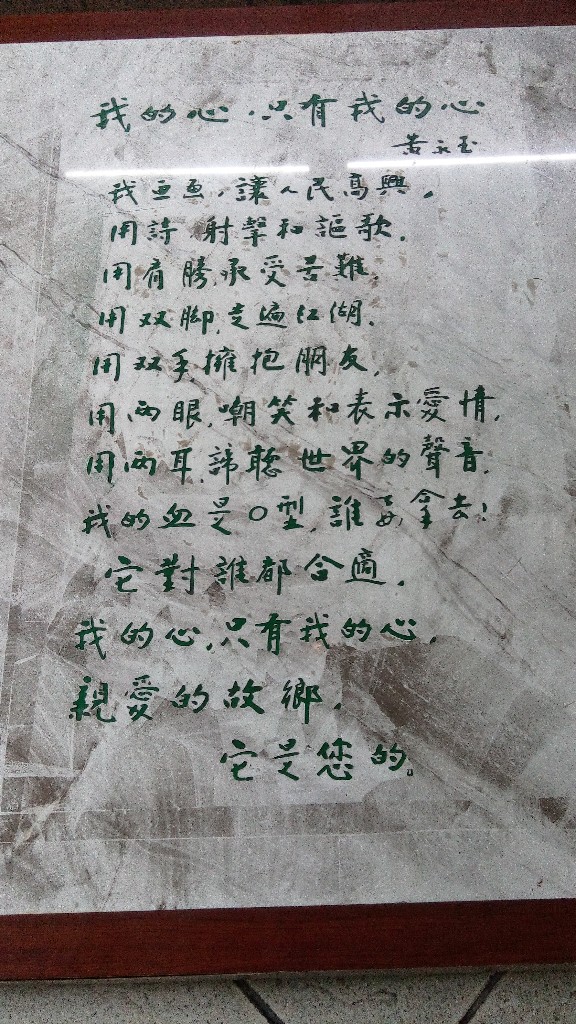 我的心,只有我的心
黄永玉
我画画,讓人民高興,
用詩射擊和謳歌,
用肩膀承受苦難,
用双脚走遍江湖,
用双手擁抱朋友,
用两眼嘲笑和表示愛情,
用两耳諦聽世界的聲音,
我的血是O型,誰要拿去!
它對誰都合適,
我的心,只有我的心,
親愛的故鄉,
它是您的。